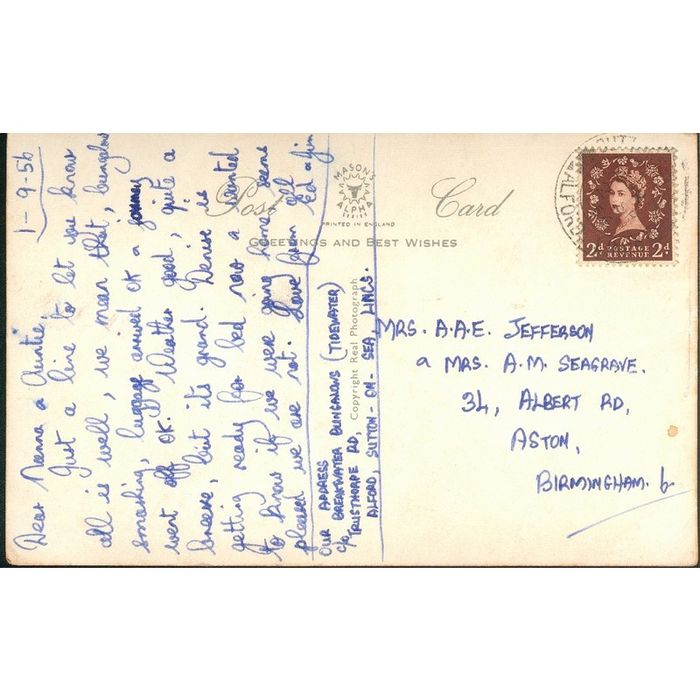 1-9-56
Dear Nanna & Auntie
Just a line to let you know
all is well, we mean that, bungalow
smashing, luggage arrived ok & journey
went off OK. Weather good, quite a
breeze, but its grand. Denise is
getting ready for bed now & wanted
to know if we were going home, seems
pleased we are not. Love from all
Ed & Jim
OUR ADDRESS
c/o BREAKWATER BUNGALOWS (TIDEWATER)
TRUSTHORPE RD,
ALFORD, SUTTON-ON-SEA, LINCS.
Post Card
MASONS
ALPHA
SERIES
PRINTED IN ENGLAND
GREETINGS AND BEST WISHES
Copyright Real Photograph
ALFORD
2d POSTAGE 2d
REVENUE
MRS. A.A.E. JEFFERSON
& MRS. A.M. SEAGRAVE.
34, ALBERT RD,
ASTON,
BIRMINGHAM. 6